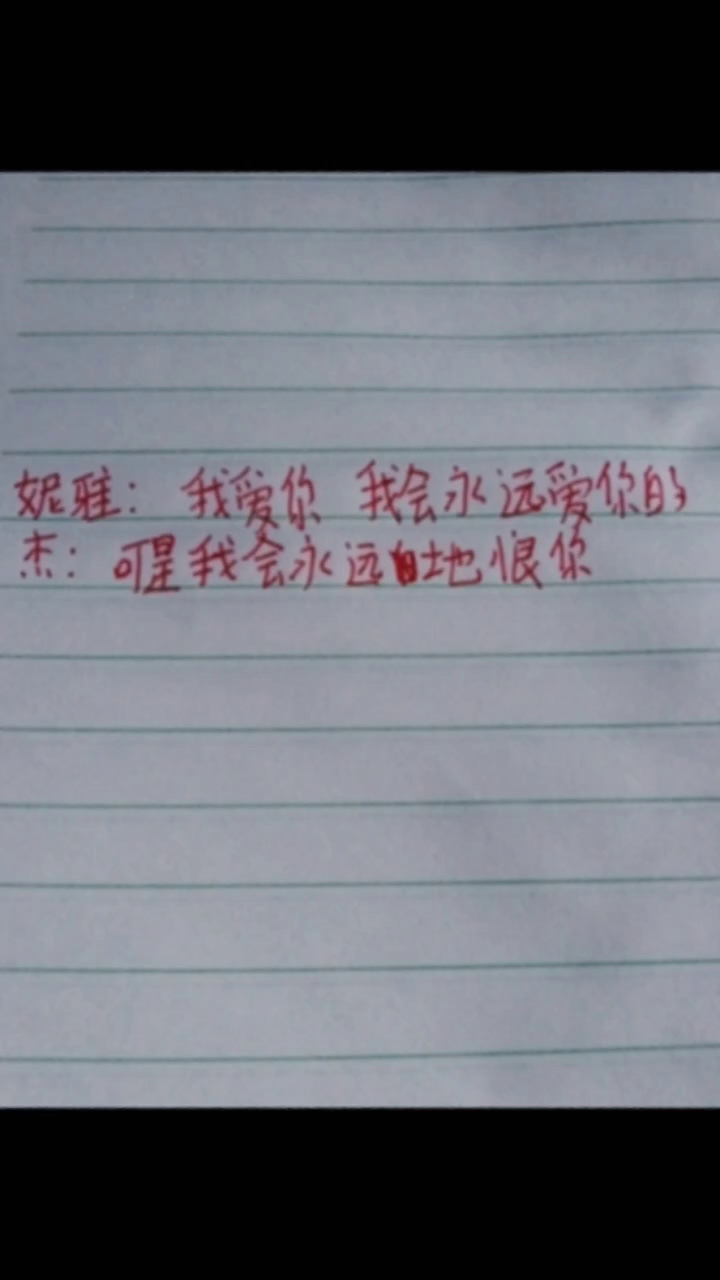 妮雅：我爱你 我会永远爱你的
杰：可是我会永远地恨你